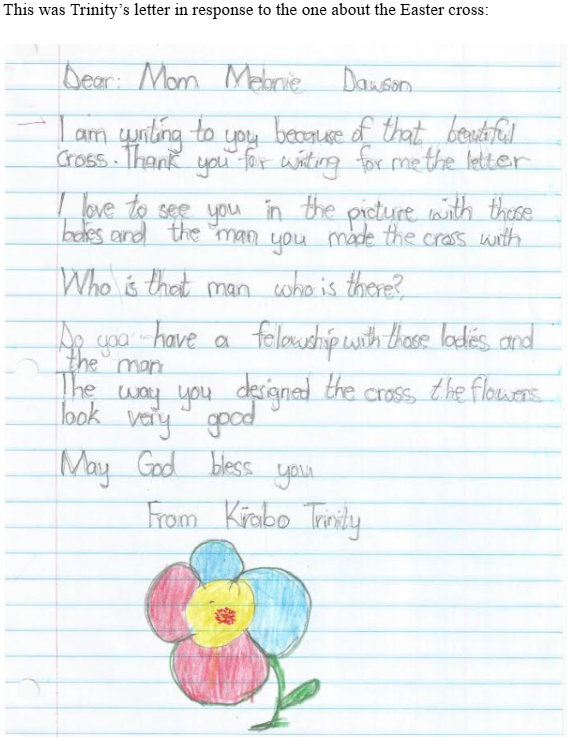 This was Trinity’s letter in response to the one about the Easter cross:
Dear: Mom Melanie Dawson
I am writing to you because of that beautiful
Cross. Thank you for writing for me the letter
I love to see you in the picture with those
ladies and the man you made the cross with
Who is that man who is there?
Do you have a felowship with those ladies and
the man
The way you designed the cross the flowers
look very good
May God bless you
From Kirabo Trinity